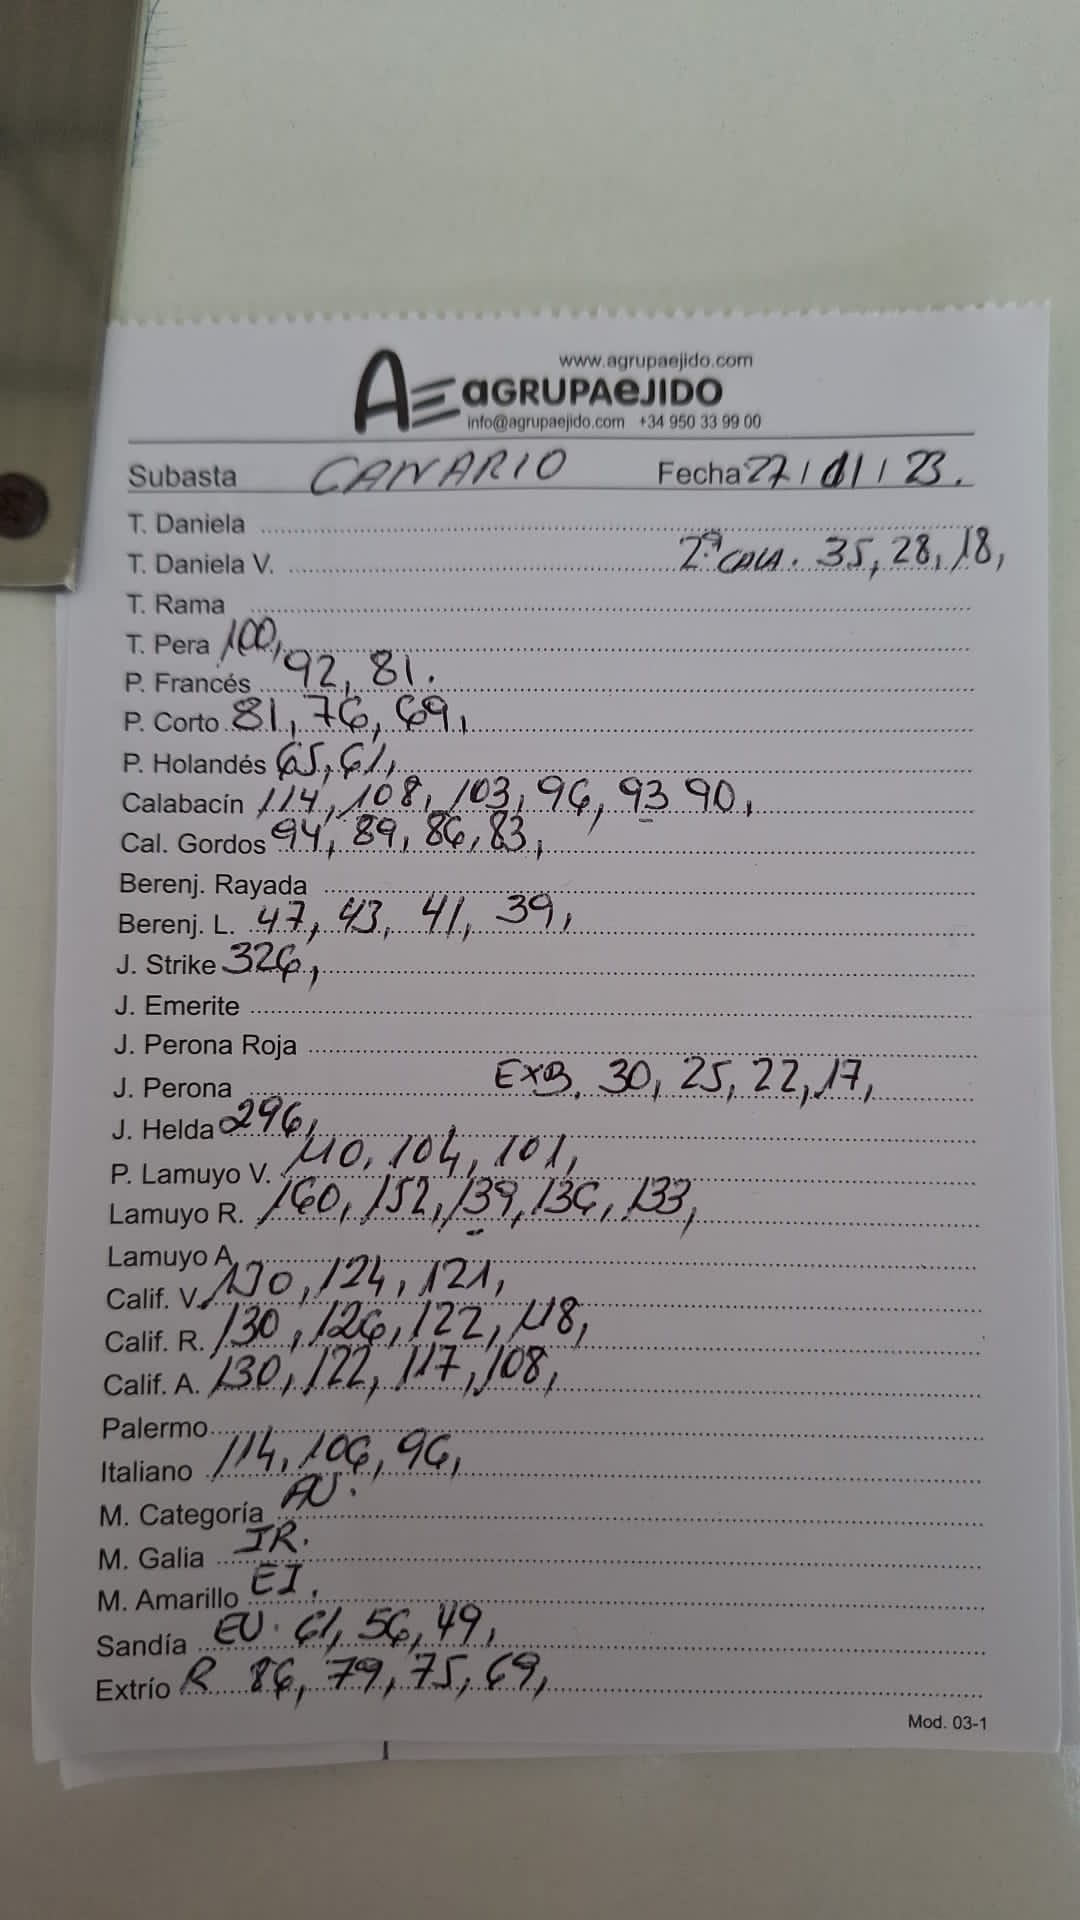 www.agrupaejido.com
AE aGRUPAeJIDO
info@agrupaejido.com +34 950 33 99 00
Subasta CANARIO Fecha 27/01/23.
T. Daniela
T. Daniela V. 2ª CALA. 35, 28, 18,
T. Rama
T. Pera 100,
P. Francés 92, 81.
P. Corto 81, 76, 69,
P. Holandés 65, 61,
Calabacín 114, 108, 103, 96, 93 90,
Cal. Gordos 94, 89, 86, 83,
Berenj. Rayada
Berenj. L. 47, 43, 41, 39,
J. Strike 326,
J. Emerite
J. Perona Roja
J. Perona EXB. 30, 25, 22, 17,
J. Helda 296,
P. Lamuyo V. 110, 104, 101,
Lamuyo R. 160, 152, 139, 136, 133,
Lamuyo A.
Calif. V. 130, 124, 121,
Calif. R. 130, 126, 122, 118,
Calif. A. 130, 122, 117, 108,
Palermo
Italiano 114, 106, 96,
M. Categoría
M. Galia IR.
M. Amarillo EI.
Sandía EU. 61, 56, 49,
Extrío R 86, 79, 75, 69,
Mod. 03-1